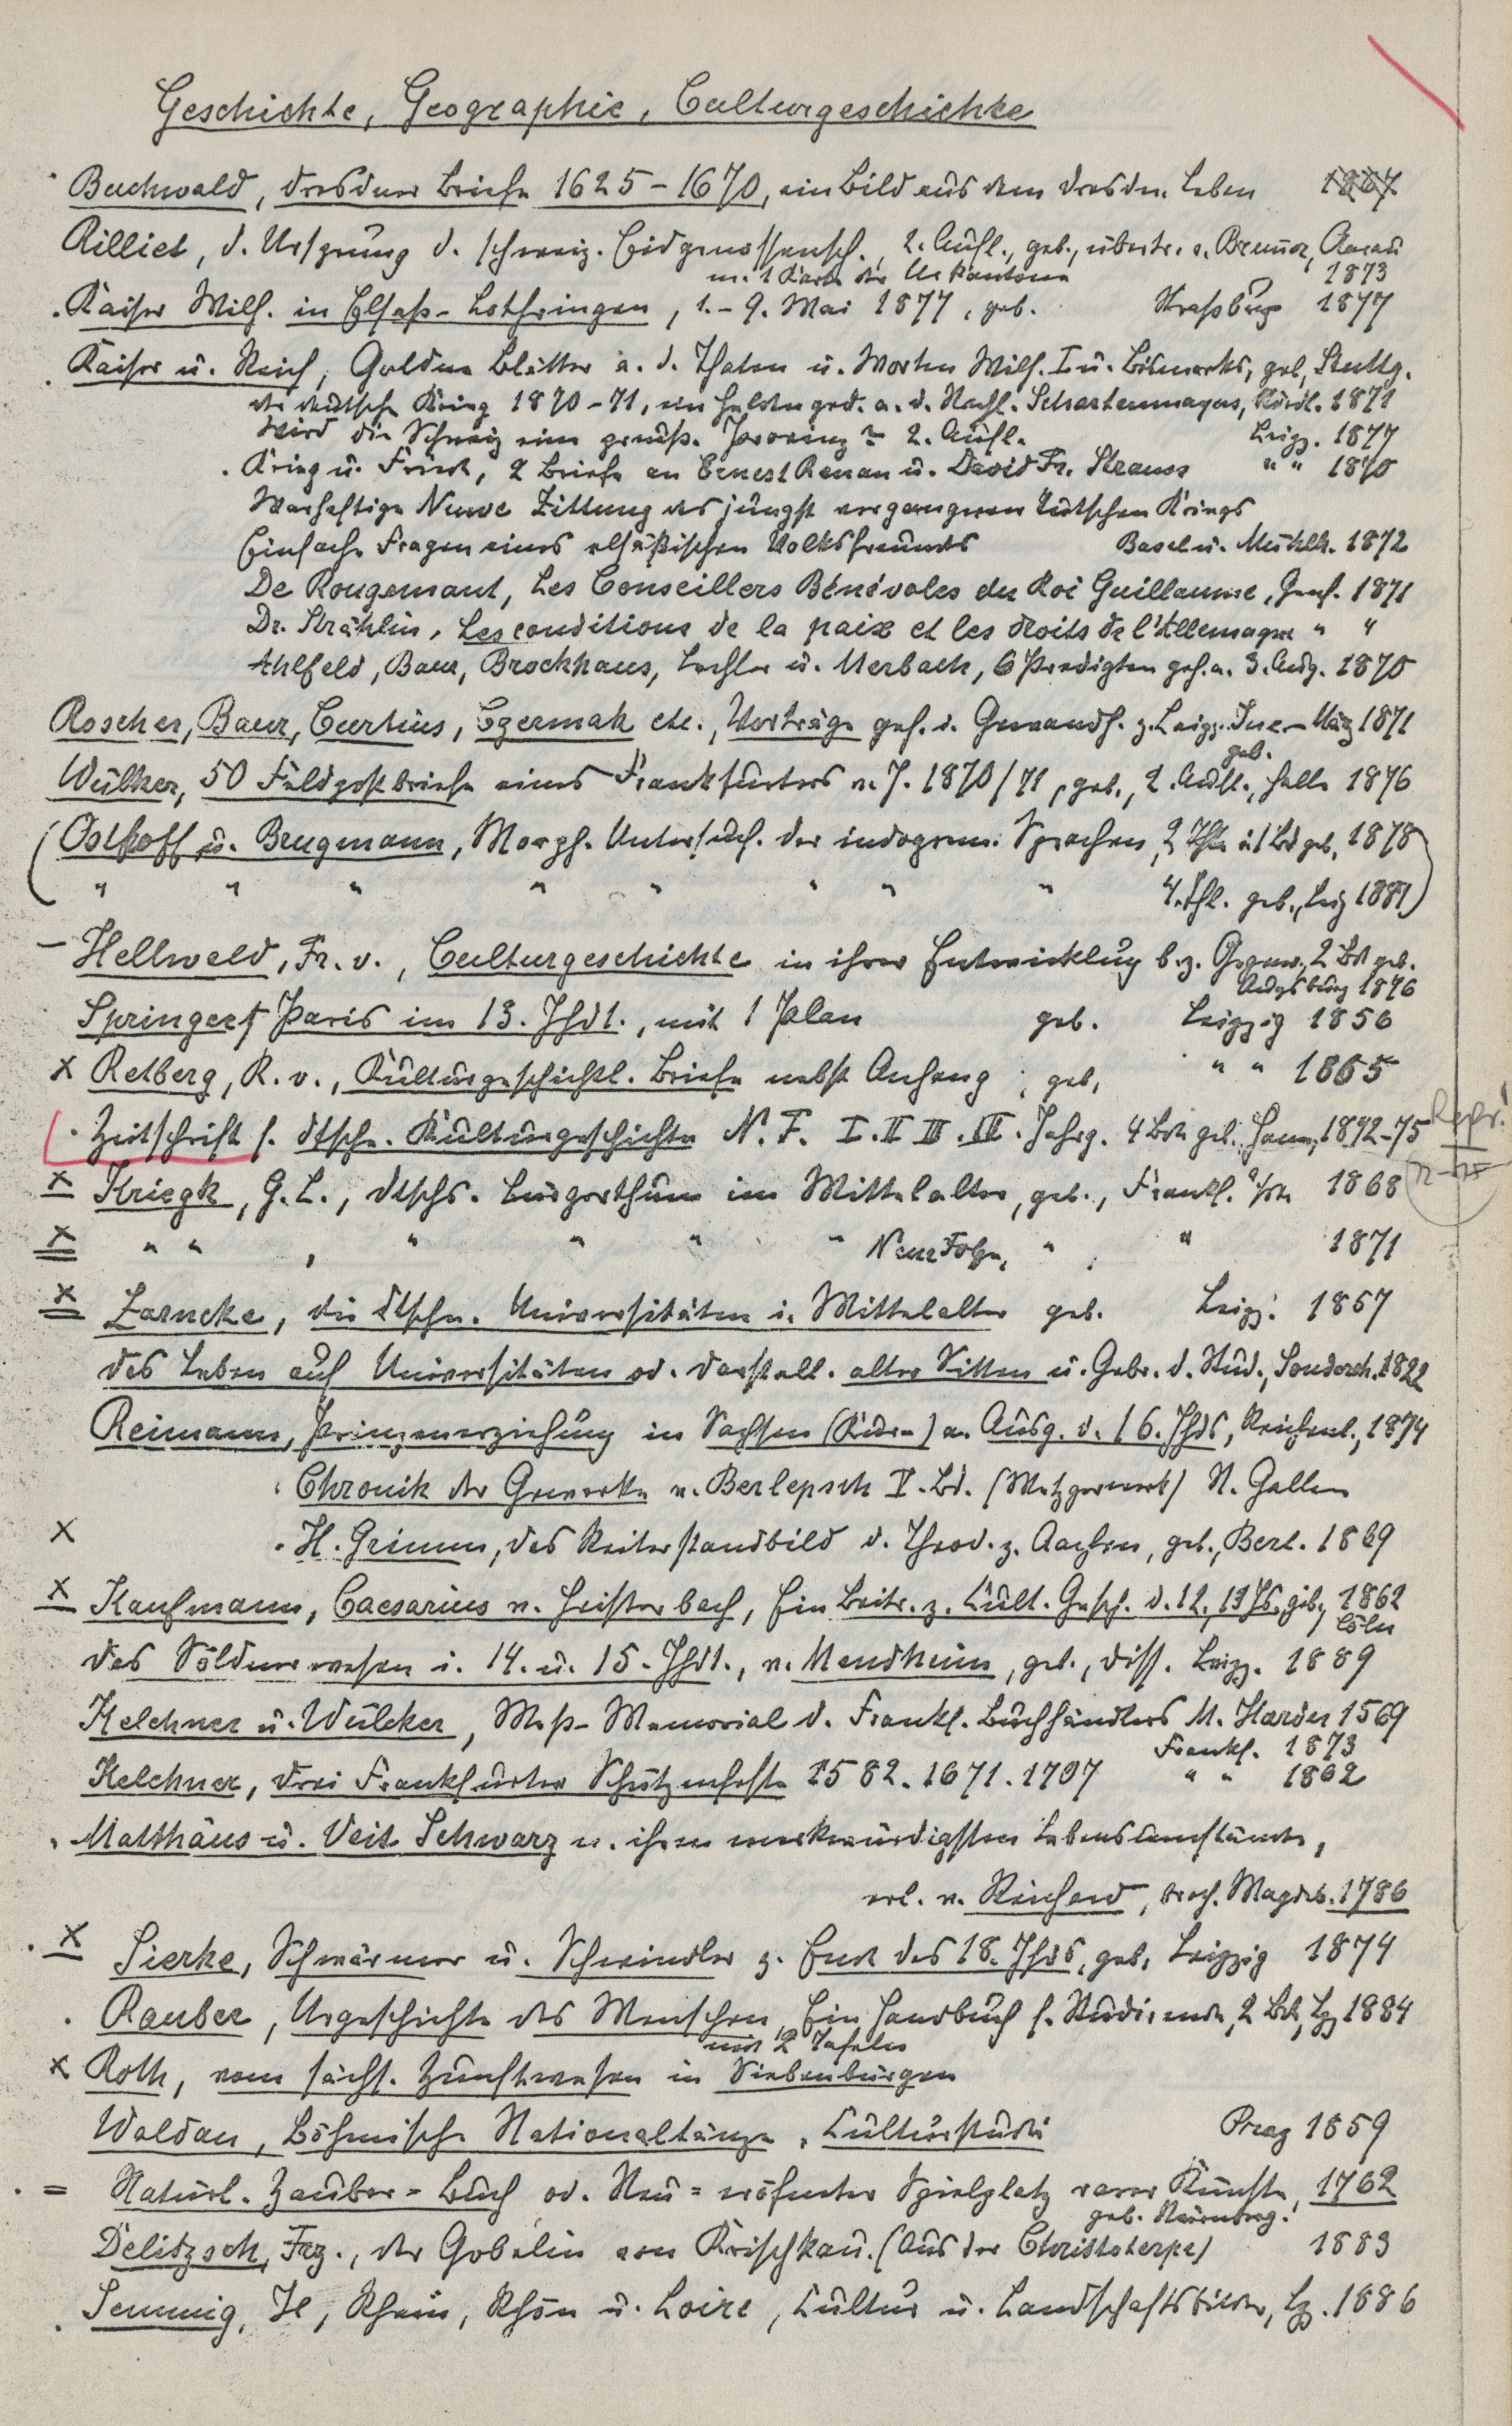 Geschichte, Geographie, Culturgeschichte
Buchwald, Dresdner Briefe 1625-1670, ein Bild aus dem Dresdn. Leben
Rilliet, d. Ursprung d. schweiz. Eidgenossensch., 2. Aufl., geb., übertr. v. Brunner, Aarau
m. 1 Karte der Urkantone 1873
Kaiser Wilh. in Elsaß-Lothringen, 1.-9. Mai 1877, geb. Straßburg 1877
Kaiser u. Reich, Goldne Blätter a. d. Thaten u. Worten Wilh. I u. Bismarcks, geb, Stuttg.
der deutsche Krieg 1870-71, ein Heldenged. a. d. Nachl. Schartenmayers, Nördl. 1871
Wird die Schweiz eine preuß. Provinz? 2. Aufl. Leipz. 1877
Krieg u. Friede, 2 Briefe an Ernest Renan u. David Fr. Strauss " " 1870
Warhaftige Newe Zittung des jüngst vergangenen tütschen Kriegs
Einfache Fragen eines elsäßischen Volksfreunds Basel u. Mühlh. 1872
De Rougemont, Les Conseillers Bénévoles du Roi Guillaume, Genf. 1871
Dr. Strählin, Les conditions de la paix et les droits de l'Allemagne " "
Ahlfeld, Baur, Brockhaus, Lechler u. Merbach, 6 Predigten geh. a. 3. Aug. 1870
Roscher, Baur, Curtius, Czermak etc., Vorträge geh. i. Gewandh. z. Leipz. Jne-März 1871
geb.
Wülker, 50 Feldpostbriefe eines Frankfurters a. J. 1870/71, geb., 2. Aufl., Halle 1876
(Osthoff u. Brugmann, Morph. Untersuch. der indogerm. Sprachen, 2 Thle i 1 Bd geb, 1878
" " " " " " " " 4. Thl. geb., Leipz 1881)
- Hellwald, Fr. v., Culturgeschichte in ihrer Entwicklug b. z. Gegenw., 2 Bde geb.
Augsburg 1876
Springer, Paris im 13. Jhdt., mit 1 Plan geb. Leipzig 1856
x Retberg, R. v., Kulturgeschichtl. Briefe nebst Anhang, geb, " " 1865
Zeitschrift f. dtsche. Kulturgeschichte N. F. I. II III. IV. Jahrg. 4 Bde geb. Hann. 1872-75 Repr.!
x Kriegk, G. L., dtschs. Bürgerthum im Mittelalter, geb., Frankf. a/M 1868
x " " , " " " " Neue Folge, " , " 1871
x Zarncke, die dtschn. Universitäten i. Mittelalter geb. Leipz. 1857
das Leben auf Universitäten od. Darstell. alter Sitten u. Gebr. d. Stud., Sondersh. 1822
Reimann, Prinzenerziehung in Sachsen a. Ausg. d. 16. Jhds, 1874
Chronik der Gewerke v. Berlepsch V. Bd. (Metzgerwerk) St. Gallen
x H. Grimm, das Reiterstandbild d. Theod. z. Aachen, geb., Berl. 1869
x Kaufmann, Caesarius v. Heisterbach, Ein Beitr. z. Cult. Gesch. d. 12, 13 Jhs, geb, 1862
Cöln
das Söldnerwesen i. 14. u. 15. Jhdt., v. Mendheim, geb., Diss. Leipz. 1889
Kelchner u. Wülcker, Meß-Memorial d. Frankf. Buchhändlers M. Harder 1569
Frankf. 1873
Kelchner, drei Frankfurter Schützenfeste 1582. 1671. 1707 " " 1862
Matthäus u. Veit Schwarz n. ihren merkwürdigsten Lebensumständen,
erl. v. Reichard, broch. Magdeb. 1786
x Sierke, Schwärmer u. Schwindler z. Ende des 18. Jhds, geb, Leipzig 1874
Rauber, Urgeschichte des Menschen, Ein Handbuch f. Studirende, 2 Bde, Lpz 1884
mit 2 Tafeln
x Roth, vom sächs. Zunftwesen in Siebenbürgen
Waldau, Böhmische Nationaltänze, Culturstudie Prag 1859
= Natürl. Zauber=Buch od. Neu=eröfneter Spielplatz rarer Künste, 1762
geb. Nürnberg.
Delitzsch, Frz., der Gobelin von Krischkau. (Aus der Christoterpe) 1883
Semmig, H, Rhein, Rhön u. Loire, Cultur u. Landschaftsbilder, Lpz. 1886